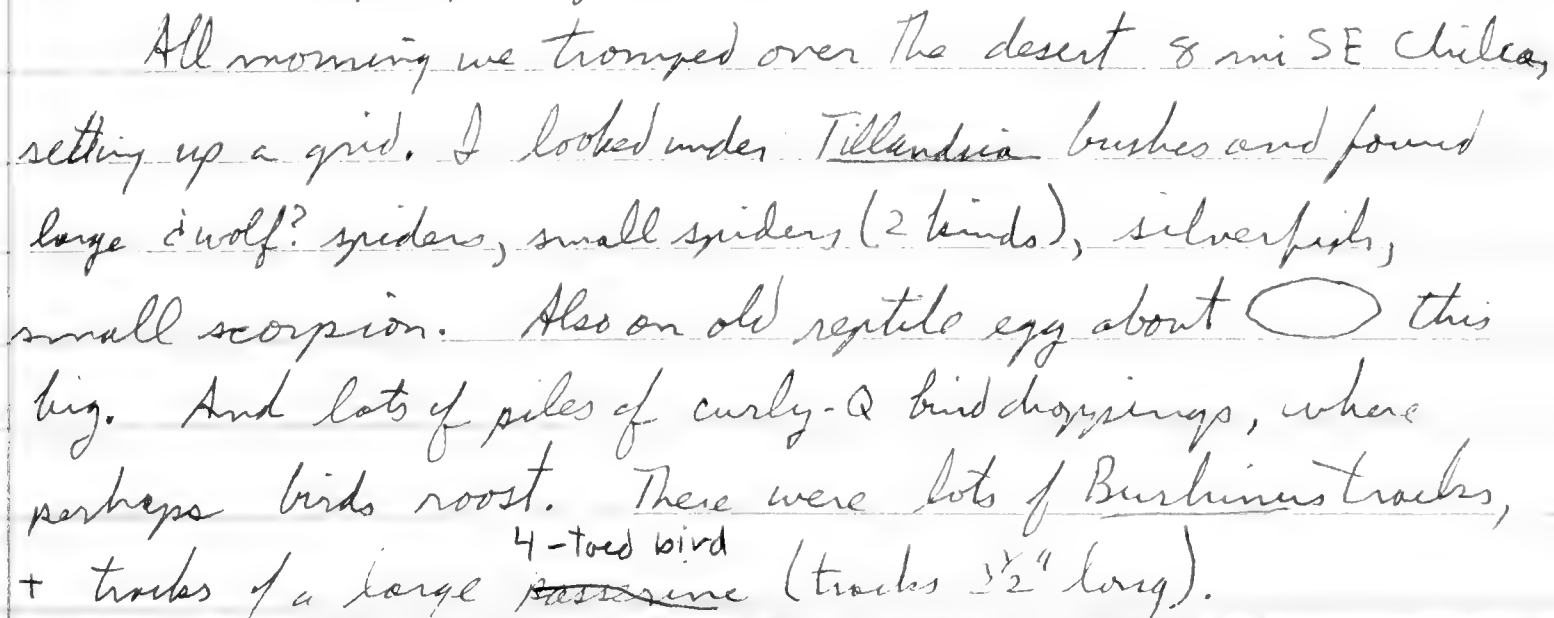 All morning we tromped over the desert 8 mi SE Chilca,
setting up a grid. I looked under Tillandsia bushes and found
large ¿wolf? spiders, small spiders (2 kinds), silverfish,
small scorpion. Also an old reptile egg about this
big. And lots of piles of curly-Q bird droppings, where
perhaps birds roost. There were lots of Burhinus tracks,
4-toed bird
+ tracks of a large passerine (tracks ½" long).